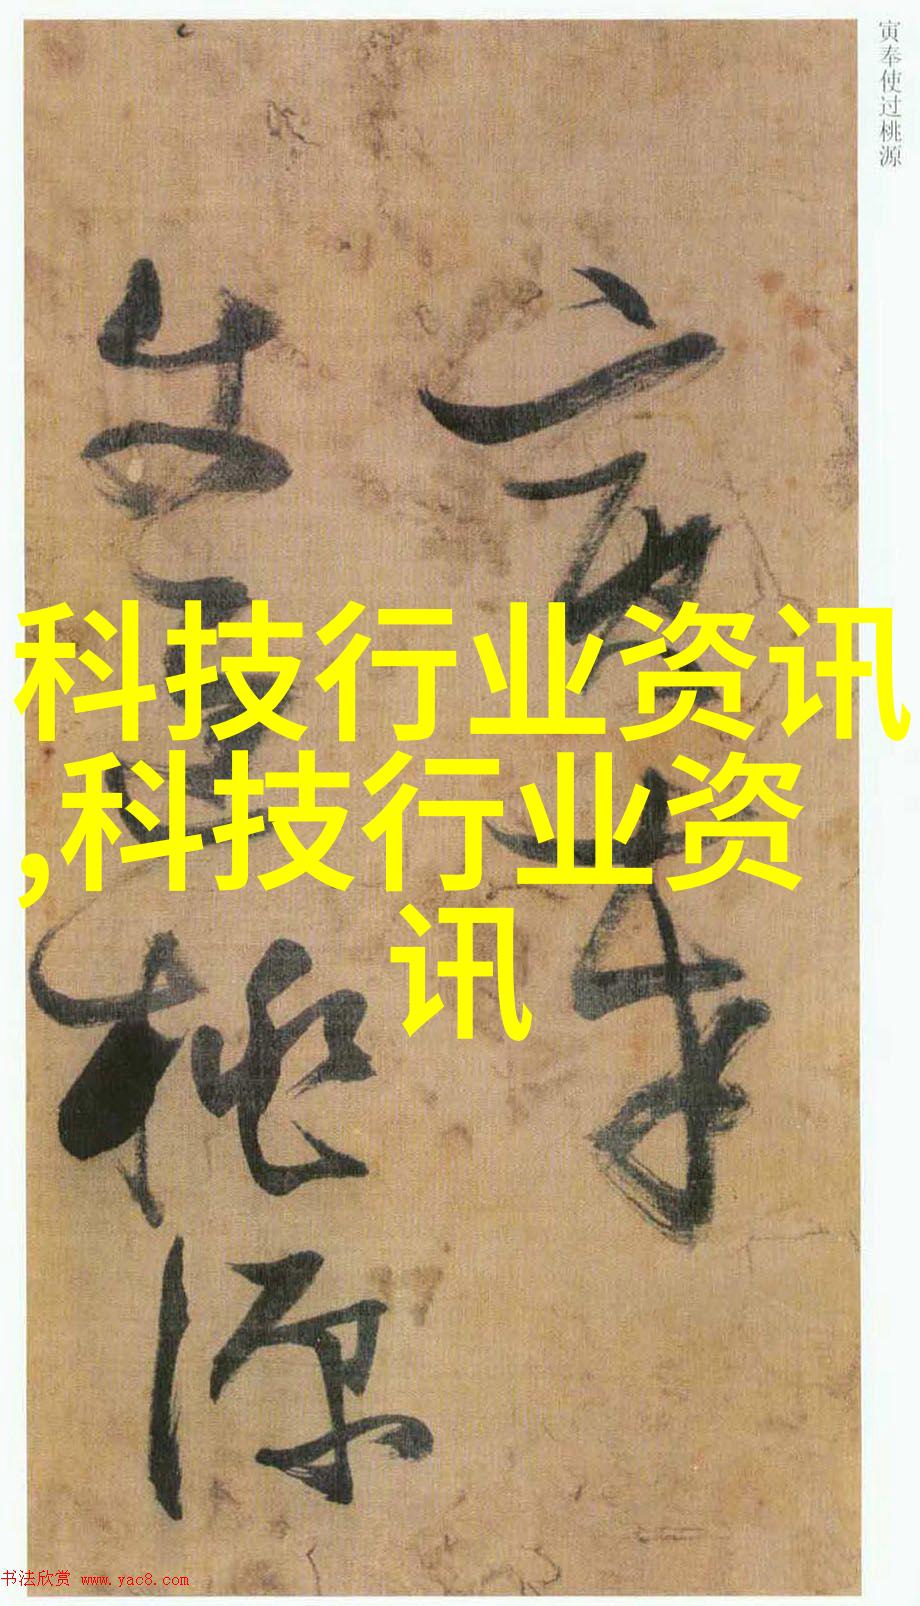 寅奉使过桃源
寅奉
使过桃源
科技行业资讯
,科技行业资
讯
书法欣赏 www.yac8.com